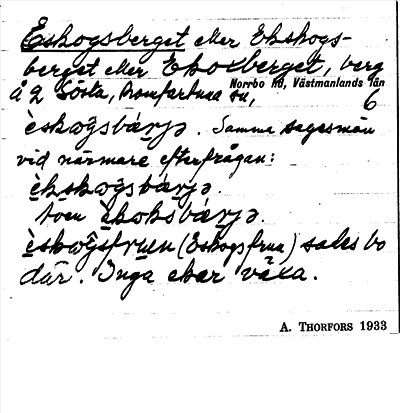 Eskogsberget eller Ekskogs-
berget eller Ekoxberget, berg
å 2 Sösta, Romfartuna sn,
Norrbo hd, Västmanlands län
6
èskωgsbárjə. Samma sagesmän
vid närmare efterfrågan:
èkskωgsbárjə.
även èkoksbárjə.
èskωgsfruen (Eskogsfrun) sades bo
där. Inga ekar växa.
A. THORFORS 1933